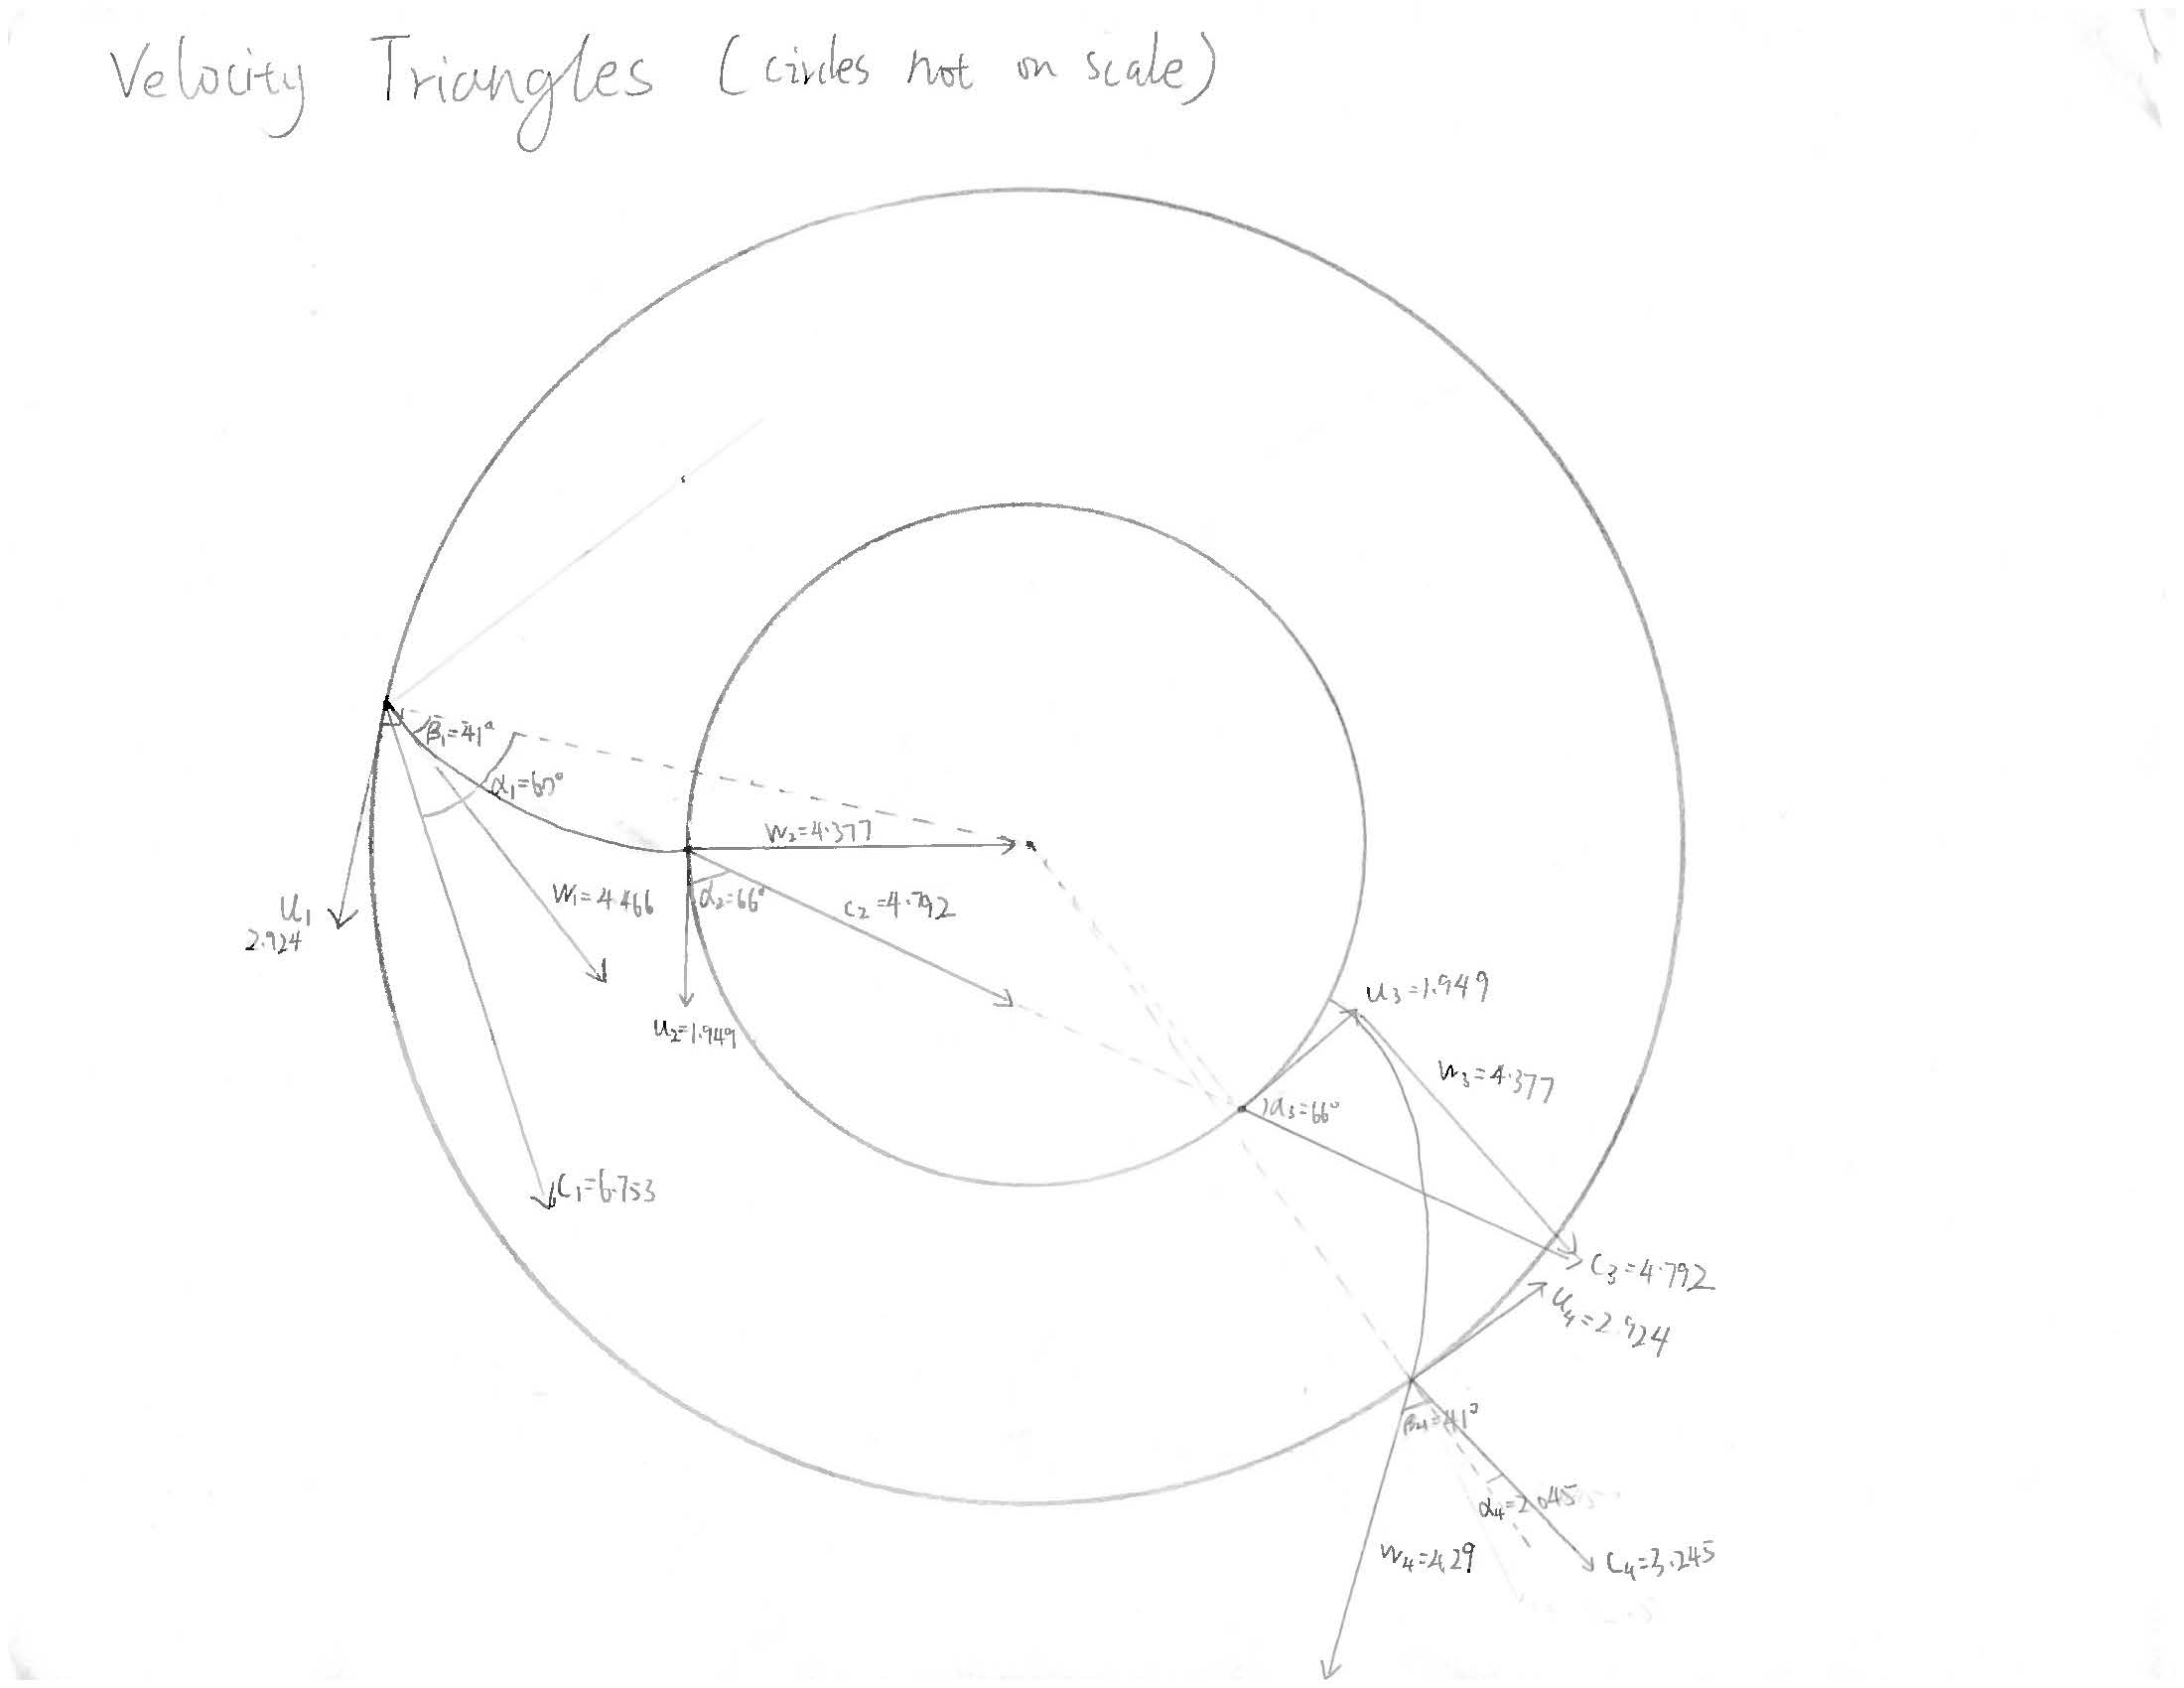 Velocity Triangles (circles not on scale)
β₁=41°
α₁=60°
W₂=4.377
U₁
2.924
W₁=4.466
α₂=66°
C₂=4.792
U₂=1.949
U₃=1.949
W₃=4.377
α₃=66°
C₁=6.753
C₃=4.792
U₄=2.924
β₄=41°
α₄=2.045
W₄=4.29
C₄=3.245